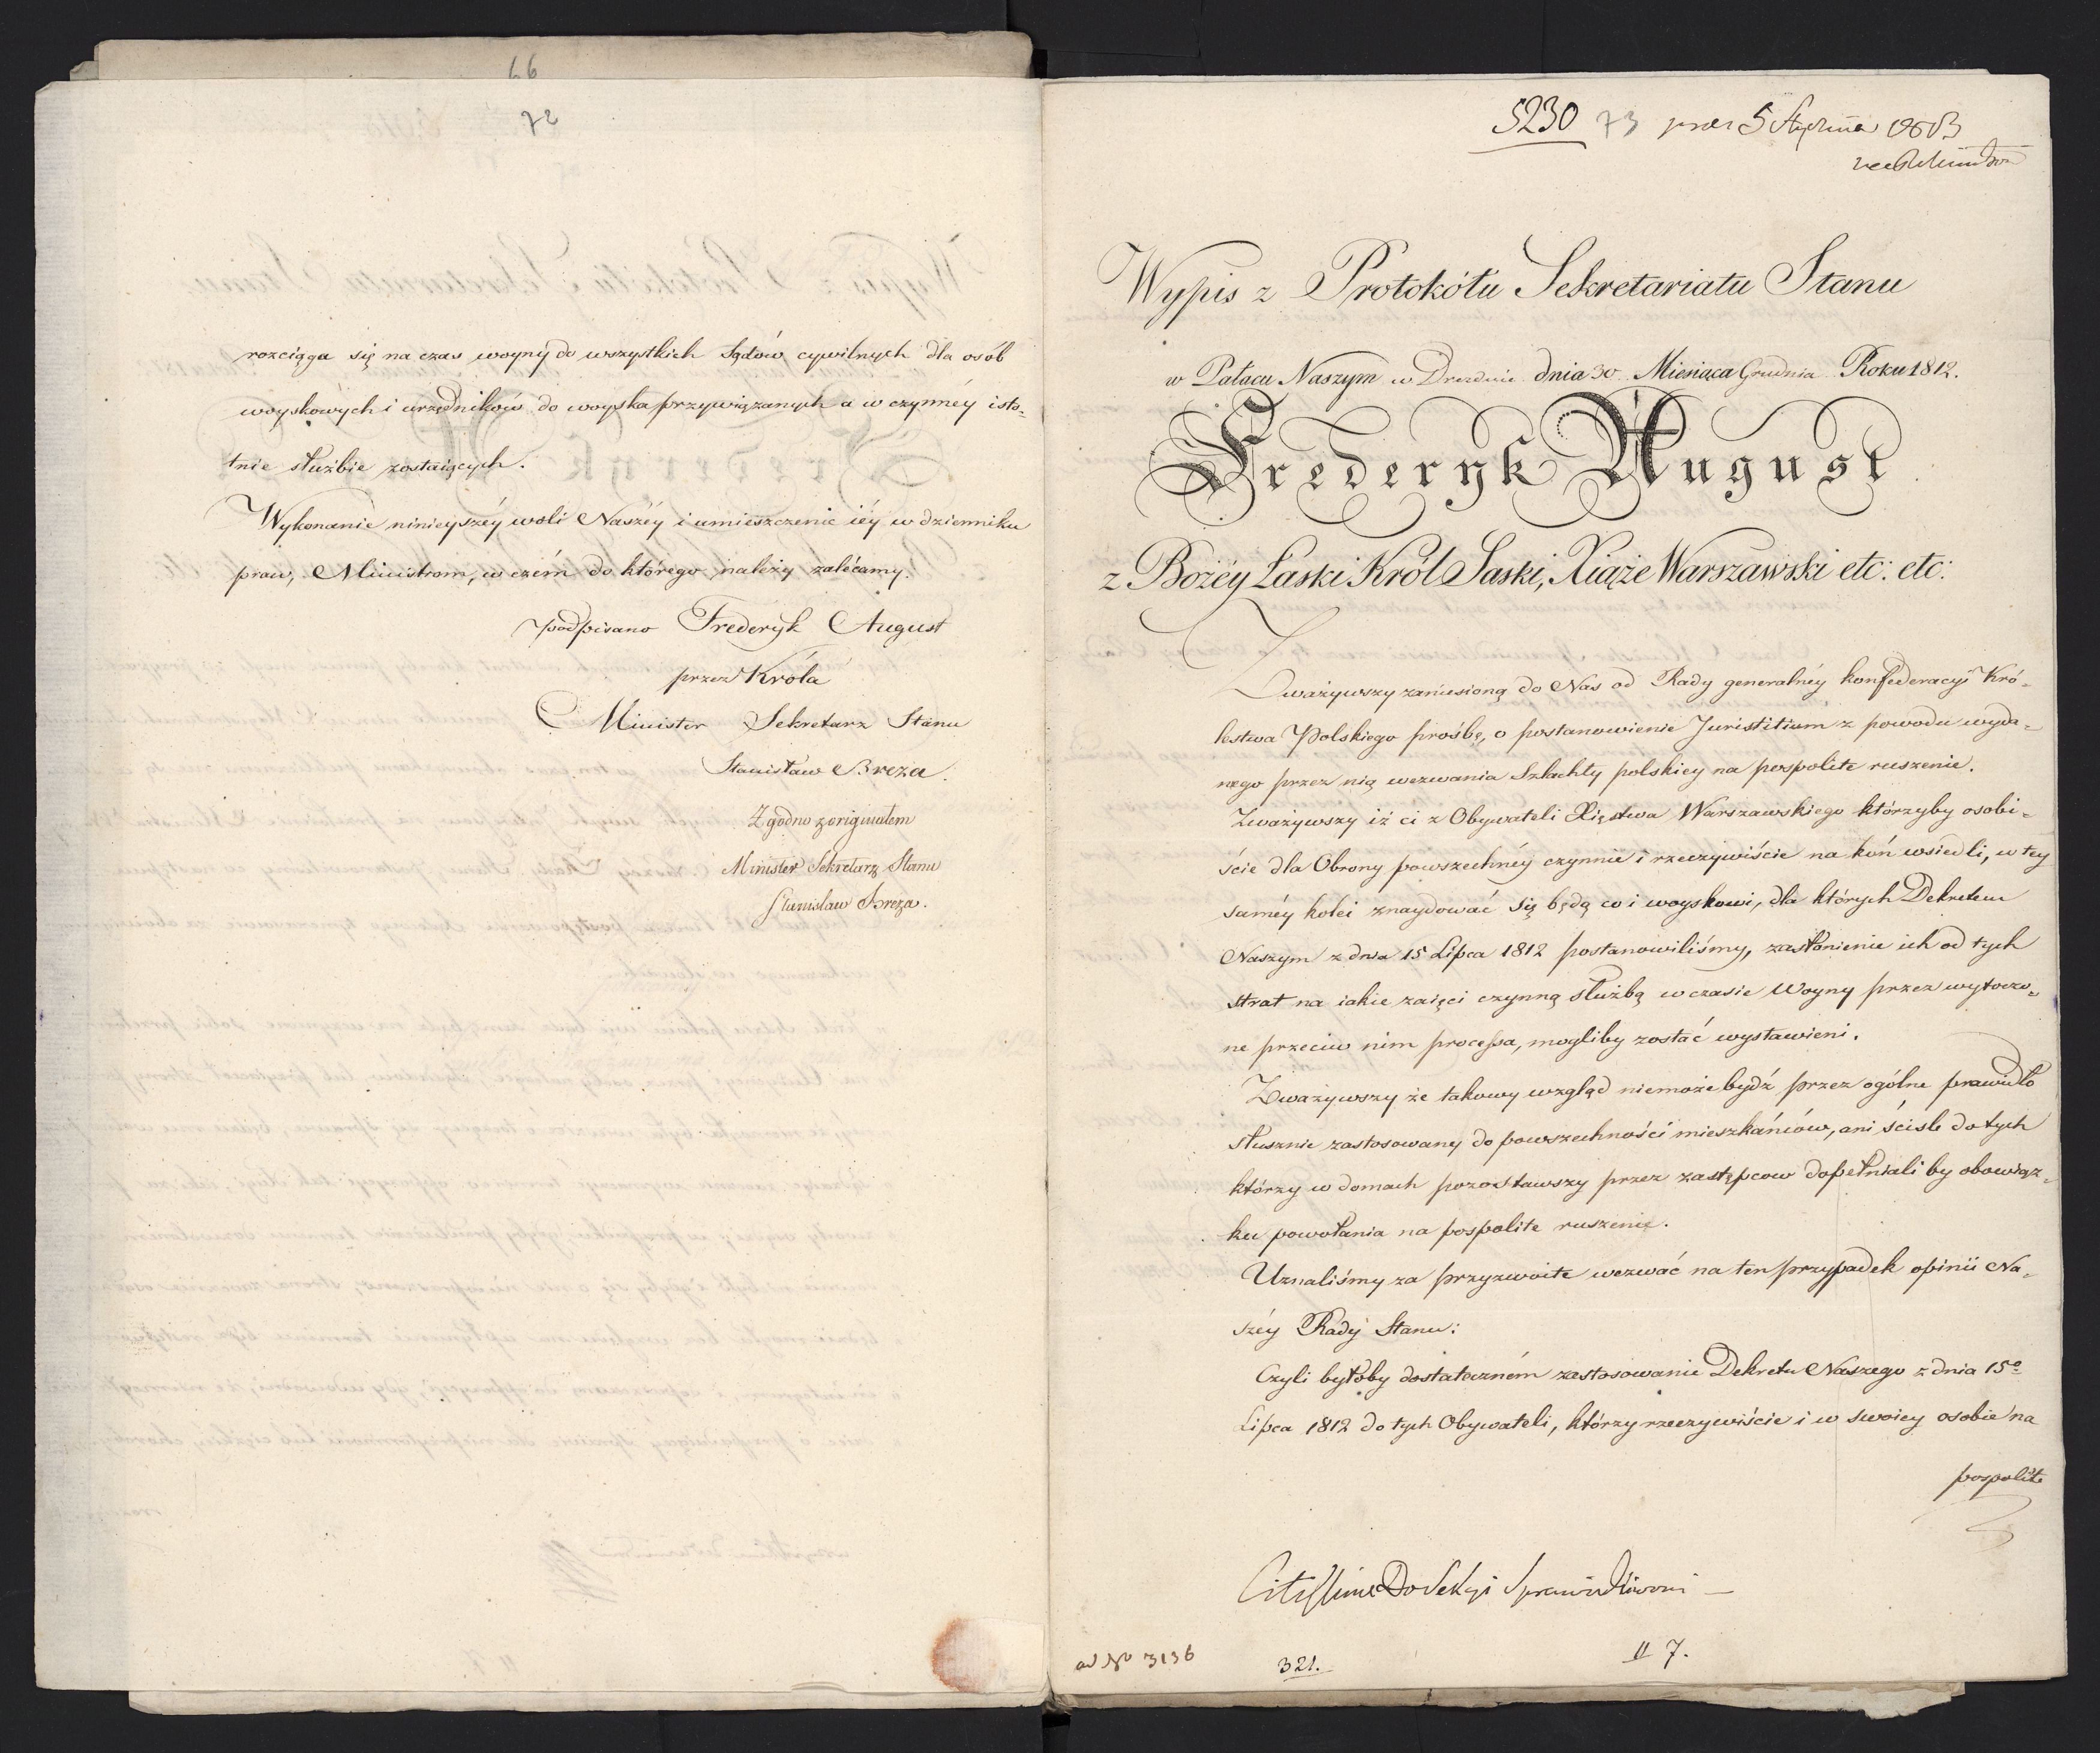 66
72
rozciąga się na czas woyny do wszystkich Sądów cywilnych dla osób
woyskowych i urzędników do woyska przywiązanych a w czynnéy isto-
tnie służbie zostaiących.
Wykonanie ninieyszéy woli Naszéy i umieszczenie iéy w dzienniku
praw, Ministrom, w czém do którego należy zalécamy.
podpisano Frederyk August
przez Króla
Minister Sekretarz Stanu
Stanisław Breza.
Zgodno z originałem
Minister Sekretarz Stanu
Stanisław Breza.
5230 73 5 Stycznia 1813
Wypis z Protokółu Sekretariatu Stanu
w Pałacu Naszym w Dreźdnie dnia 30 Miesiąca Grudnia Roku 1812.
Frederyk August
z Bożéy Łaski Król Saski, Xiąże Warszawski etc: etc:
Zważywszy zaniesioną do Nas od Rady generalnéy konfederacyi Kró-
lestwa Polskiego prośbę, o postanowienie Juristitium z powodu wyda-
nego przez nią wezwania Szlachty polskiey na pospolite ruszenie.
Zważywszy iż ci z Obywateli Xięstwa Warszawskiego którzyby osobi-
ście dla Obrony powszechnéy czynnie i rzeczywiście na koń wsiedli, w tey
saméy kolei znaydować się będą co i woyskowi, dla których Dekretem
Naszym z dnia 15 Lipca 1812 postanowiliśmy, zasłonienie ich od tych
strat na iakie zaięci czynną służbą w czasie Woyny przez wytoczo-
ne przeciw nim processa, mogliby zostać wystawieni.
Zważywszy że takowy wzgląd niemoże bydź przez ogólne prawidło
słusznie zastosowany do powszechności mieszkańców, ani ściśle do tych
którzy w domach pozostawszy przez zastępcow dopełniali by obowiąz-
ku powołania na pospolite ruszenie.
Uznaliśmy za przyzwoite wezwać na ten przypadek opinii Na-
széy Rady Stanu:
Czyli byłoby dostateczném zastosowanie Dekretu Naszego z dnia 15º
Lipca 1812 do tych Obywateli, którzy rzeczywiście i w swoiey osobie na
pospolite
Citissime Do Sekcyi Sprawiedliwości —
ad No 3136
321.
7.